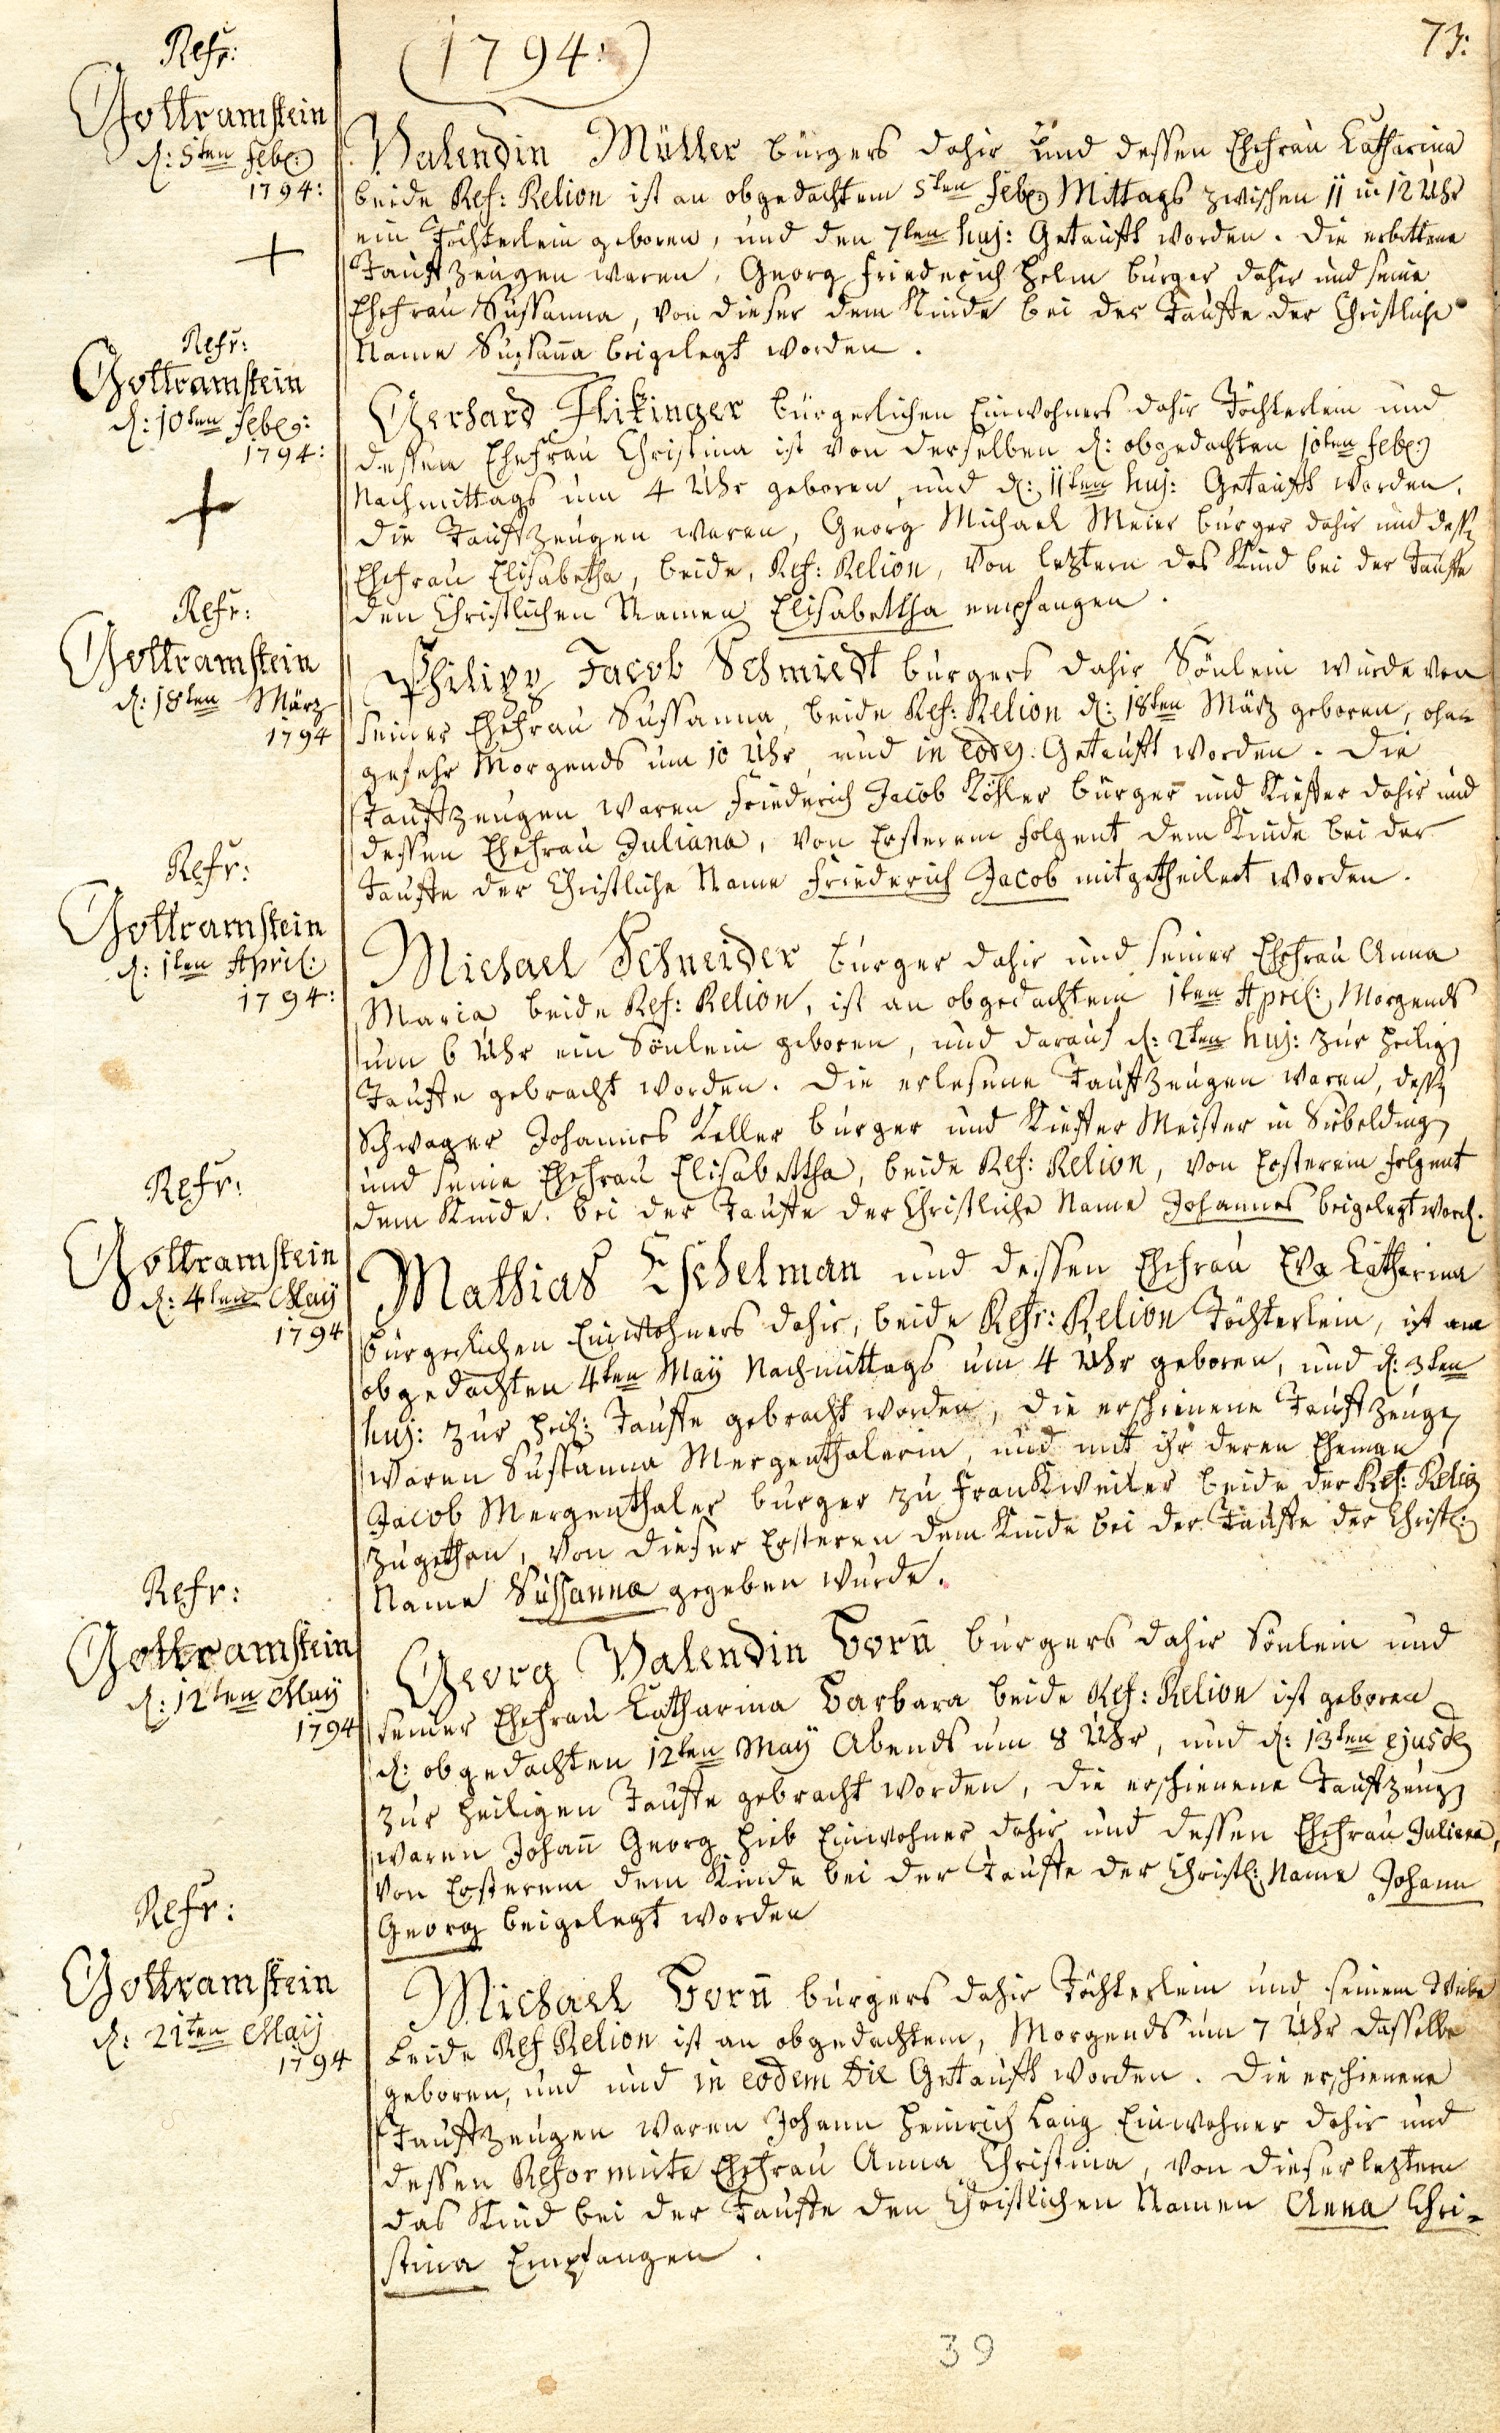 (1794:)
73:
Refr:
Gottramstein
d: 5ten Feb:
1794:
Valendin Müller bürgers dahir und dessen Ehefrau Catharina
beide Ref: Relion ist an obgedachtem 5ten Feb: Mittags zwischen 11 u 12 Uhr
ein Töchterlein geboren, und den 7ten huj: Getauft worden. Die erbettene
Taufzeugen waren, Georg Friederich Helm bürger dahir und seine
Ehefrau Sussanna, von dieser dem Kinde bei der Taufte der Christliche
Name Sussana beigelegt worden.
Refr:
Gottramstein
d: 10ten Feb:
1794:
Gerhard Flikinger bürgerlichen Einwohners dahir Töchterlein und
dessen Ehefrau Christina ist von derselben d: obgedachten 10ten Feb:
Nachmittags um 4 Uhr geboren, und d: 11ten huj: Getauft worden.
Die Taufzeugen waren, Georg Michael Meier bürger dahir und dess
Ehefrau Elisabetha, beide, Ref: Relion, von leztern das Kind bei der Taufte
den Christlichen Namen Elisabettha empfangen.
Refr:
Gottramstein
d: 18ten März
1794
Philipp Jacob Schmiedt bürgers dahir Sönlein wurde von
seiner Ehefrau Sussanna, beide Ref: Relion d: 18ten März geboren, ohn
gefehr Morgends um 10 Uhr, und in eod: Getauft worden. Die
Taufzeugen waren Friederich Jacob Köhler bürger und Kieffer dahir und
dessen Ehefrau Juliana, von Ersterem folgent dem Kinde bei der
Taufte der Christliche Name Friederich Jacob mitgetheilet worden.
Refr:
Gottramstein
d: 1ten April:
1794:
Michael Schneider bürger dahir und seiner Ehefrau Anna
Maria beide Ref: Relion, ist an obgedachtem 1ten April: Morgends
um 6 Uhr ein Sönlein geboren, und darauf d: 2ten huj: zur heilig
Taufte gebracht worden. Die erlesene Taufzeugen waren, dess
Schwager Johannes Keller bürger und Kieffer Meister in Sibelding
und seine Ehefrau Elisabettha, beide Ref: Relion, von Ersterem folgent
dem Kinde. bei der Taufte der Christliche Name Johannes beigelegt word.
Refr:
Gottramstein
d: 4ten May
1794
Mathias Eschelman und dessen Ehefrau Eva Catharina
bürgerlichen Einwohners dahir, beide Refr: Relion Töchterlein, ist am
obgedachten 4ten May Nachmittags um 4 Uhr geboren, und d: 3ten
huj: zur heil: Taufte gebracht worden, die erschienene Taufzeuge
waren Sussanna Mergenthalerin, und mit ihr deren Eheman
Jacob Mergenthaler bürger zu Frankweiler beide der Ref: Relig
zugethan, von dieser Ersteren dem Kinde bei der Taufte der Christl:
Name Sussanna gegeben wurde.
Refr:
Gottramstein
d: 12ten May
1794
Georg Valendin Born bürgers dahir Sönlein und
seiner Ehefrau Catharina Barbara beide Ref: Relion ist geboren
d: obgedachten 12ten May Abends um 8 Uhr, und d: 13ten ejusd
zur heiligen Taufte gebracht worden, die erschienene Taufzeug
waren Johan Georg Hieb Einwohner dahir und dessen Ehefrau Juliana,
von Ersterem dem Kinde bei der Taufte der Christl: Name Johann
Georg beigelegt worden
Refr:
Gottramstein
d: 21ten May
1794
Michael Born bürgers dahir Töchterlein und seinem Weibe
beide Ref Relion ist an obgedachtem, Morgends um 7 Uhr dasselbe
geboren, und und in eodem Die Getauft worden. Die erschienene
Taufzeugen waren Johann Heinrich Lang Einwohner dahir und
dessen Reformirte Ehefrau Anna Christina, von dieser leztern
das Kind bei der Taufte den Christlichen Namen Anna Chri-
stina Empfangen.
39